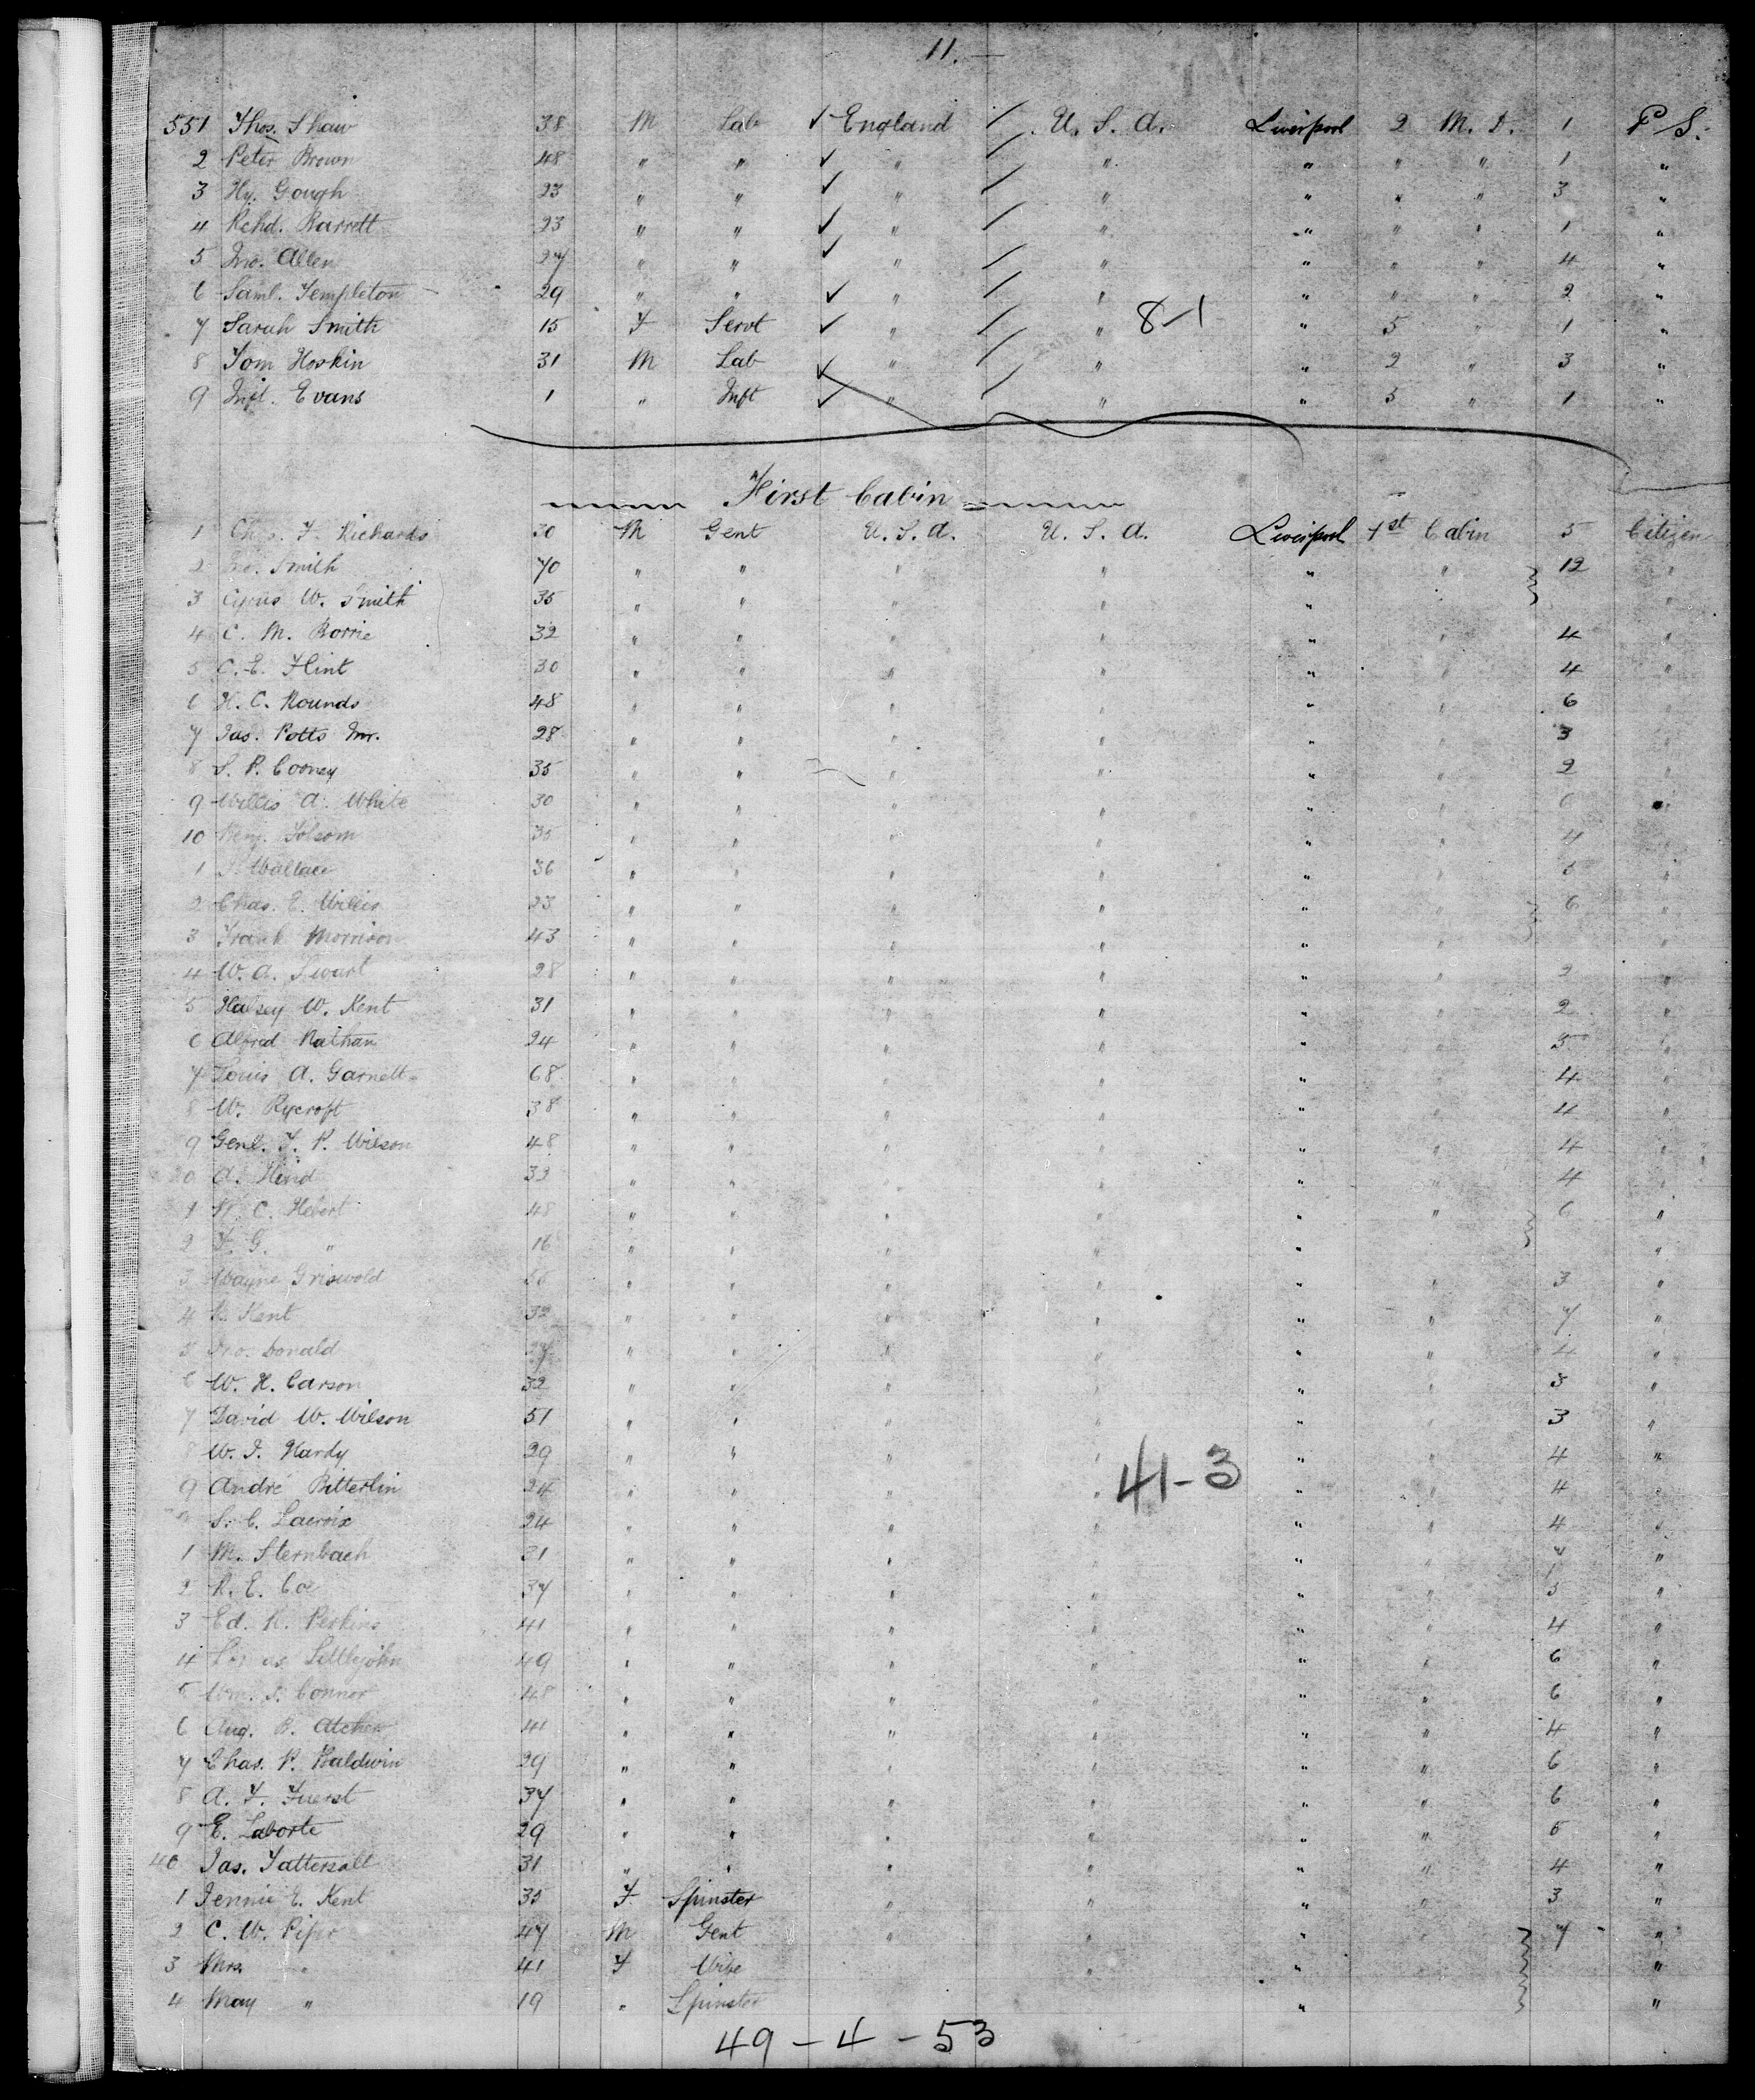 11. —
551 Thos. Shaw 38 M Lab ✓ England / U. S. A. Liverpool 2 M. D. 1 P S.
2 Peter Brown 48 " " ✓ " / " " " " 1 "
3 Hy. Gough 23 " " ✓ " / " " " " 3 "
4 Rchd. Barrett 23 " " ✓ " / " " " " 1 "
5 Jno. Allen 27 " " ✓ " / " " " " 4 "
6 Saml. Templeton 29 " " ✓ " / " " " " 2 "
7 Sarah Smith 15 F Servt ✓ " / " 8-1 " 5 " 1 "
8 Tom Hoskin 31 M Lab ✓ " / " " 2 " 3 "
9 Inft. Evans 1 " Inft ✓ " / " " 5 " 1 "
First Cabin
1 F. Richards 30 M Gent U. S. A. U. S. A. Liverpool 1st Cabin 5 Citizen
2 Smith 70 " " " " " " 12 "
3 Cyrus W. Smith 35 " " " " " "
4 C. M. Borrie 32 " " " " " " 4 "
5 C. E. Flint 30 " " " " " " 4 "
6 H. C. Rounds 48 " " " " " " 6 "
7 Jas. Potts Jnr. 28 " " " " " " 3 "
8 S. P. Cooney 35 " " " " " " 2 "
9 Willis A. White 30 " " " " " " 6 "
10 Benj. Folsom 35 " " " " " " 4 "
1 Wallace 36 " " " " " " 6 "
2 Chas. E. Willis 23 " " " " " " 6 "
3 Frank Morrison 43 " " " " " " "
4 W. A. Swart 28 " " " " " " 2 "
5 Halsey W. Kent 31 " " " " " " 2 "
6 Alfred Nathan 24 " " " " " " 5 "
7 Louis A. Garnett 68 " " " " " " 4 "
8 W. Rycroft 38 " " " " " " 4 "
9 Genl. J. P. Wilson 48 " " " " " " 4 "
20 A. Hind 32 " " " " " " 4 "
1 C. Hebert 48 " " " " " " 6 "
2 F. G. " 16 " " " " " "
3 Wayne Griswold " " " " " " 3 "
4 Kent 32 " " " " " " 7 "
5 Jno. Donald 27 " " " " " " 4 "
6 W. H. Carson 32 " " " " " " 3 "
7 David W. Wilson 51 " " " " " " 3 "
8 W. J. Hardy 29 " " " " " " 4 "
9 André Bitterlin 24 " " " " 41-3 " " 4 "
S. C. Lacroix 24 " " " " " " 4 "
1 M. Sternbach 31 " " " " " " "
2 R. E. Coe 37 " " " " " " 5 "
3 Ed. H. Perkins 41 " " " " " " 4 "
4 Littlejohn 49 " " " " " " 6 "
5 Wm. S. Connor 48 " " " " " " 6 "
6 Aug. B. 41 " " " " " " 4 "
7 Chas. P. Baldwin 29 " " " " " " 6 "
8 A. F. Fuerst 37 " " " " " " 6 "
9 E. Laborte 29 " " " " " " 5 "
40 Jas. Tattersall 31 " " " " " " 4 "
1 Jennie E. Kent 35 F Spinster " " " " 3 "
2 C. W. Piper 47 M Gent " " " " 7 "
3 Mrs. " 41 F Wife " " "
4 May " 19 " Spinster " "
49 - 4 - 53